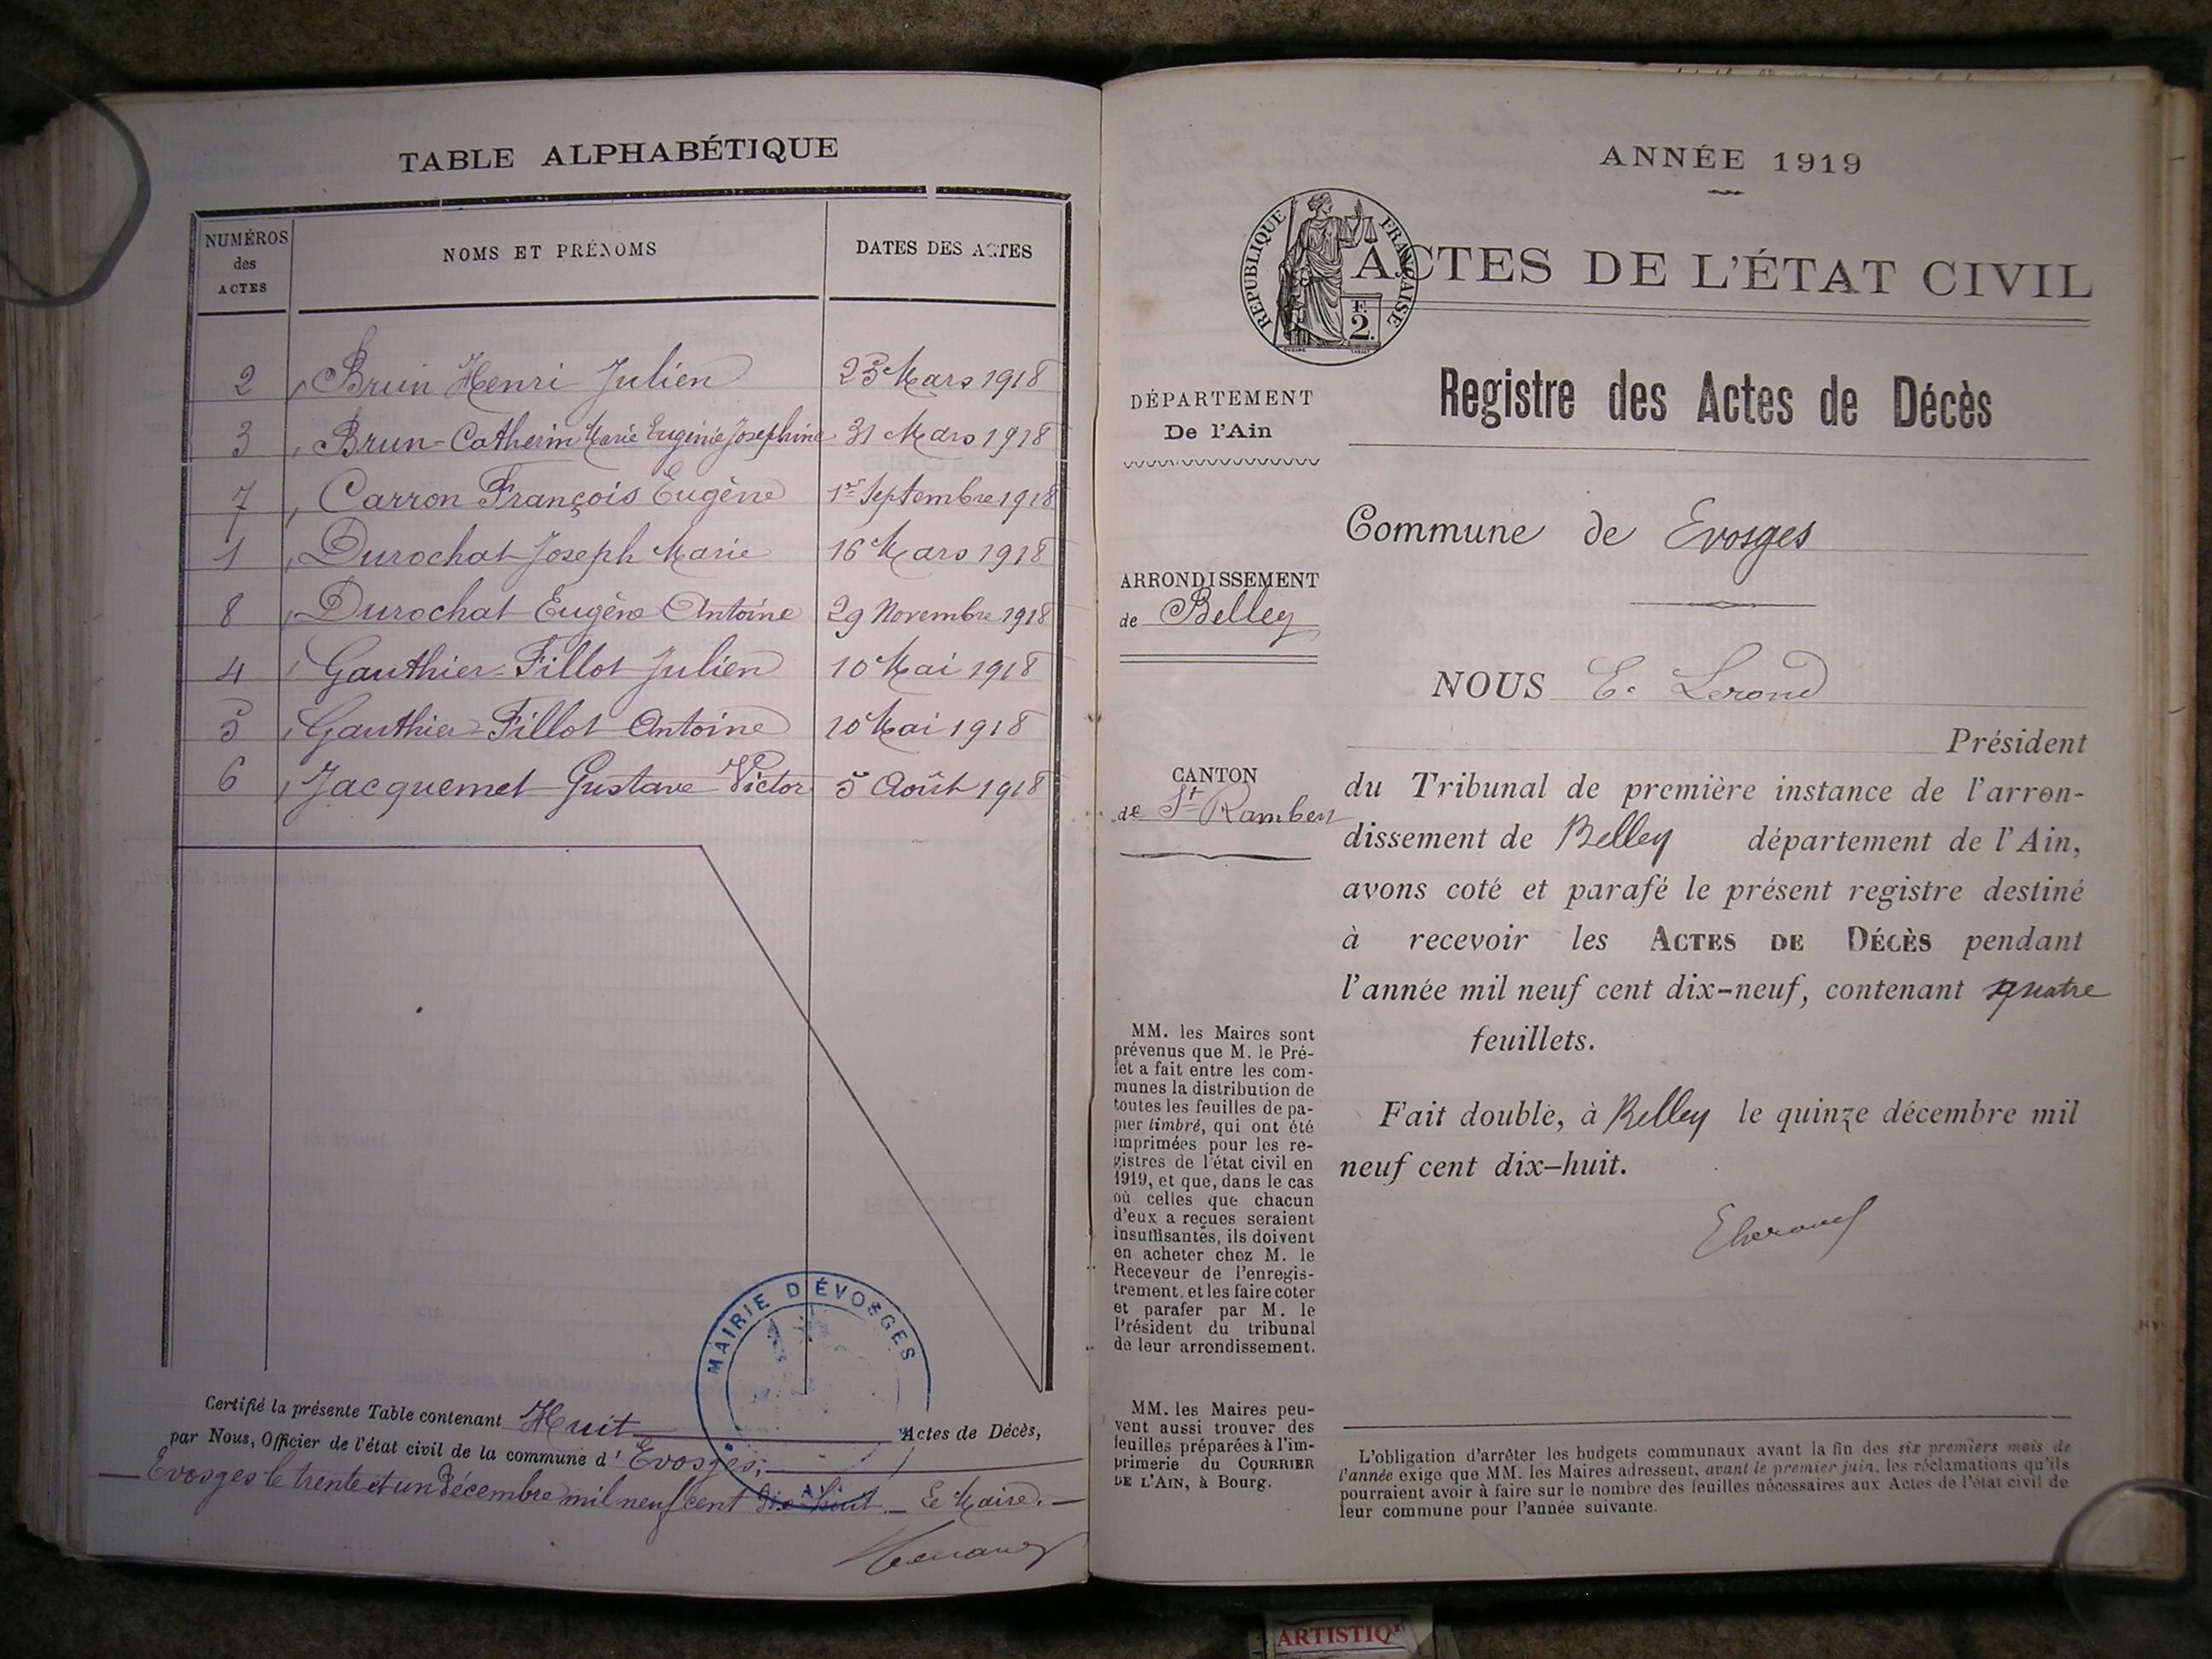 TABLE ALPHABÉTIQUE
NUMÉROS des ACTES
NOMS ET PRÉNOMS
DATES DES ACTES
2 Brun Henri Julien 23 Mars 1918
3 Brun-Catherin Marie Eugénie Josephine 31 Mars 1918
7 Carron François Eugène 1er Septembre 1918
1 Durochat Joseph Marie 16 Mars 1918
8 Durochat Eugène Antoine 29 Novembre 1918
4 Gauthier-Fillot Julien 10 Mai 1918
5 Gauthier-Fillot Antoine 10 Mai 1918
6 Jacquemet Gustave Victor 5 Août 1918
MAIRIE D'ÉVOSGES
AIN
Certifié la présente Table contenant Huit Actes de Décès,
par Nous, Officier de l'état civil de la commune d'Evosges;
Evosges le trente et un Décembre mil neuf cent dix-huit. Le Maire.
ANNÉE 1919
RÉPUBLIQUE FRANÇAISE
F.
2.
ACTES DE L'ÉTAT CIVIL
Registre des Actes de Décès
DÉPARTEMENT
De l'Ain
ARRONDISSEMENT
de Belley
CANTON
de St Rambert
MM. les Maires sont
prévenus que M. le Pré-
fet a fait entre les com-
munes la distribution de
toutes les feuilles de pa-
pier timbré, qui ont été
imprimées pour les re-
gistres de l'état civil en
1919, et que, dans le cas
où celles que chacun
d'eux a reçues seraient
insuffisantes, ils doivent
en acheter chez M. le
Receveur de l'enregis-
trement, et les faire coter
et parafer par M. le
Président du tribunal
de leur arrondissement.
MM. les Maires peu-
vent aussi trouver des
feuilles préparées à l'im-
primerie du COURRIER
DE L'AIN, à Bourg.
Commune de Evosges
NOUS E. Lerond
Président
du Tribunal de première instance de l'arron-
dissement de Belley département de l'Ain,
avons coté et parafé le présent registre destiné
à recevoir les ACTES DE DÉCÈS pendant
l'année mil neuf cent dix-neuf, contenant quatre
feuillets.
Fait double, à Belley le quinze décembre mil
neuf cent dix-huit.
L'obligation d'arrêter les budgets communaux avant la fin des six premiers mois de
l'année exige que MM. les Maires adressent, avant le premier juin, les réclamations qu'ils
pourraient avoir à faire sur le nombre des feuilles nécessaires aux Actes de l'état civil de
leur commune pour l'année suivante.
ARTISTIQ